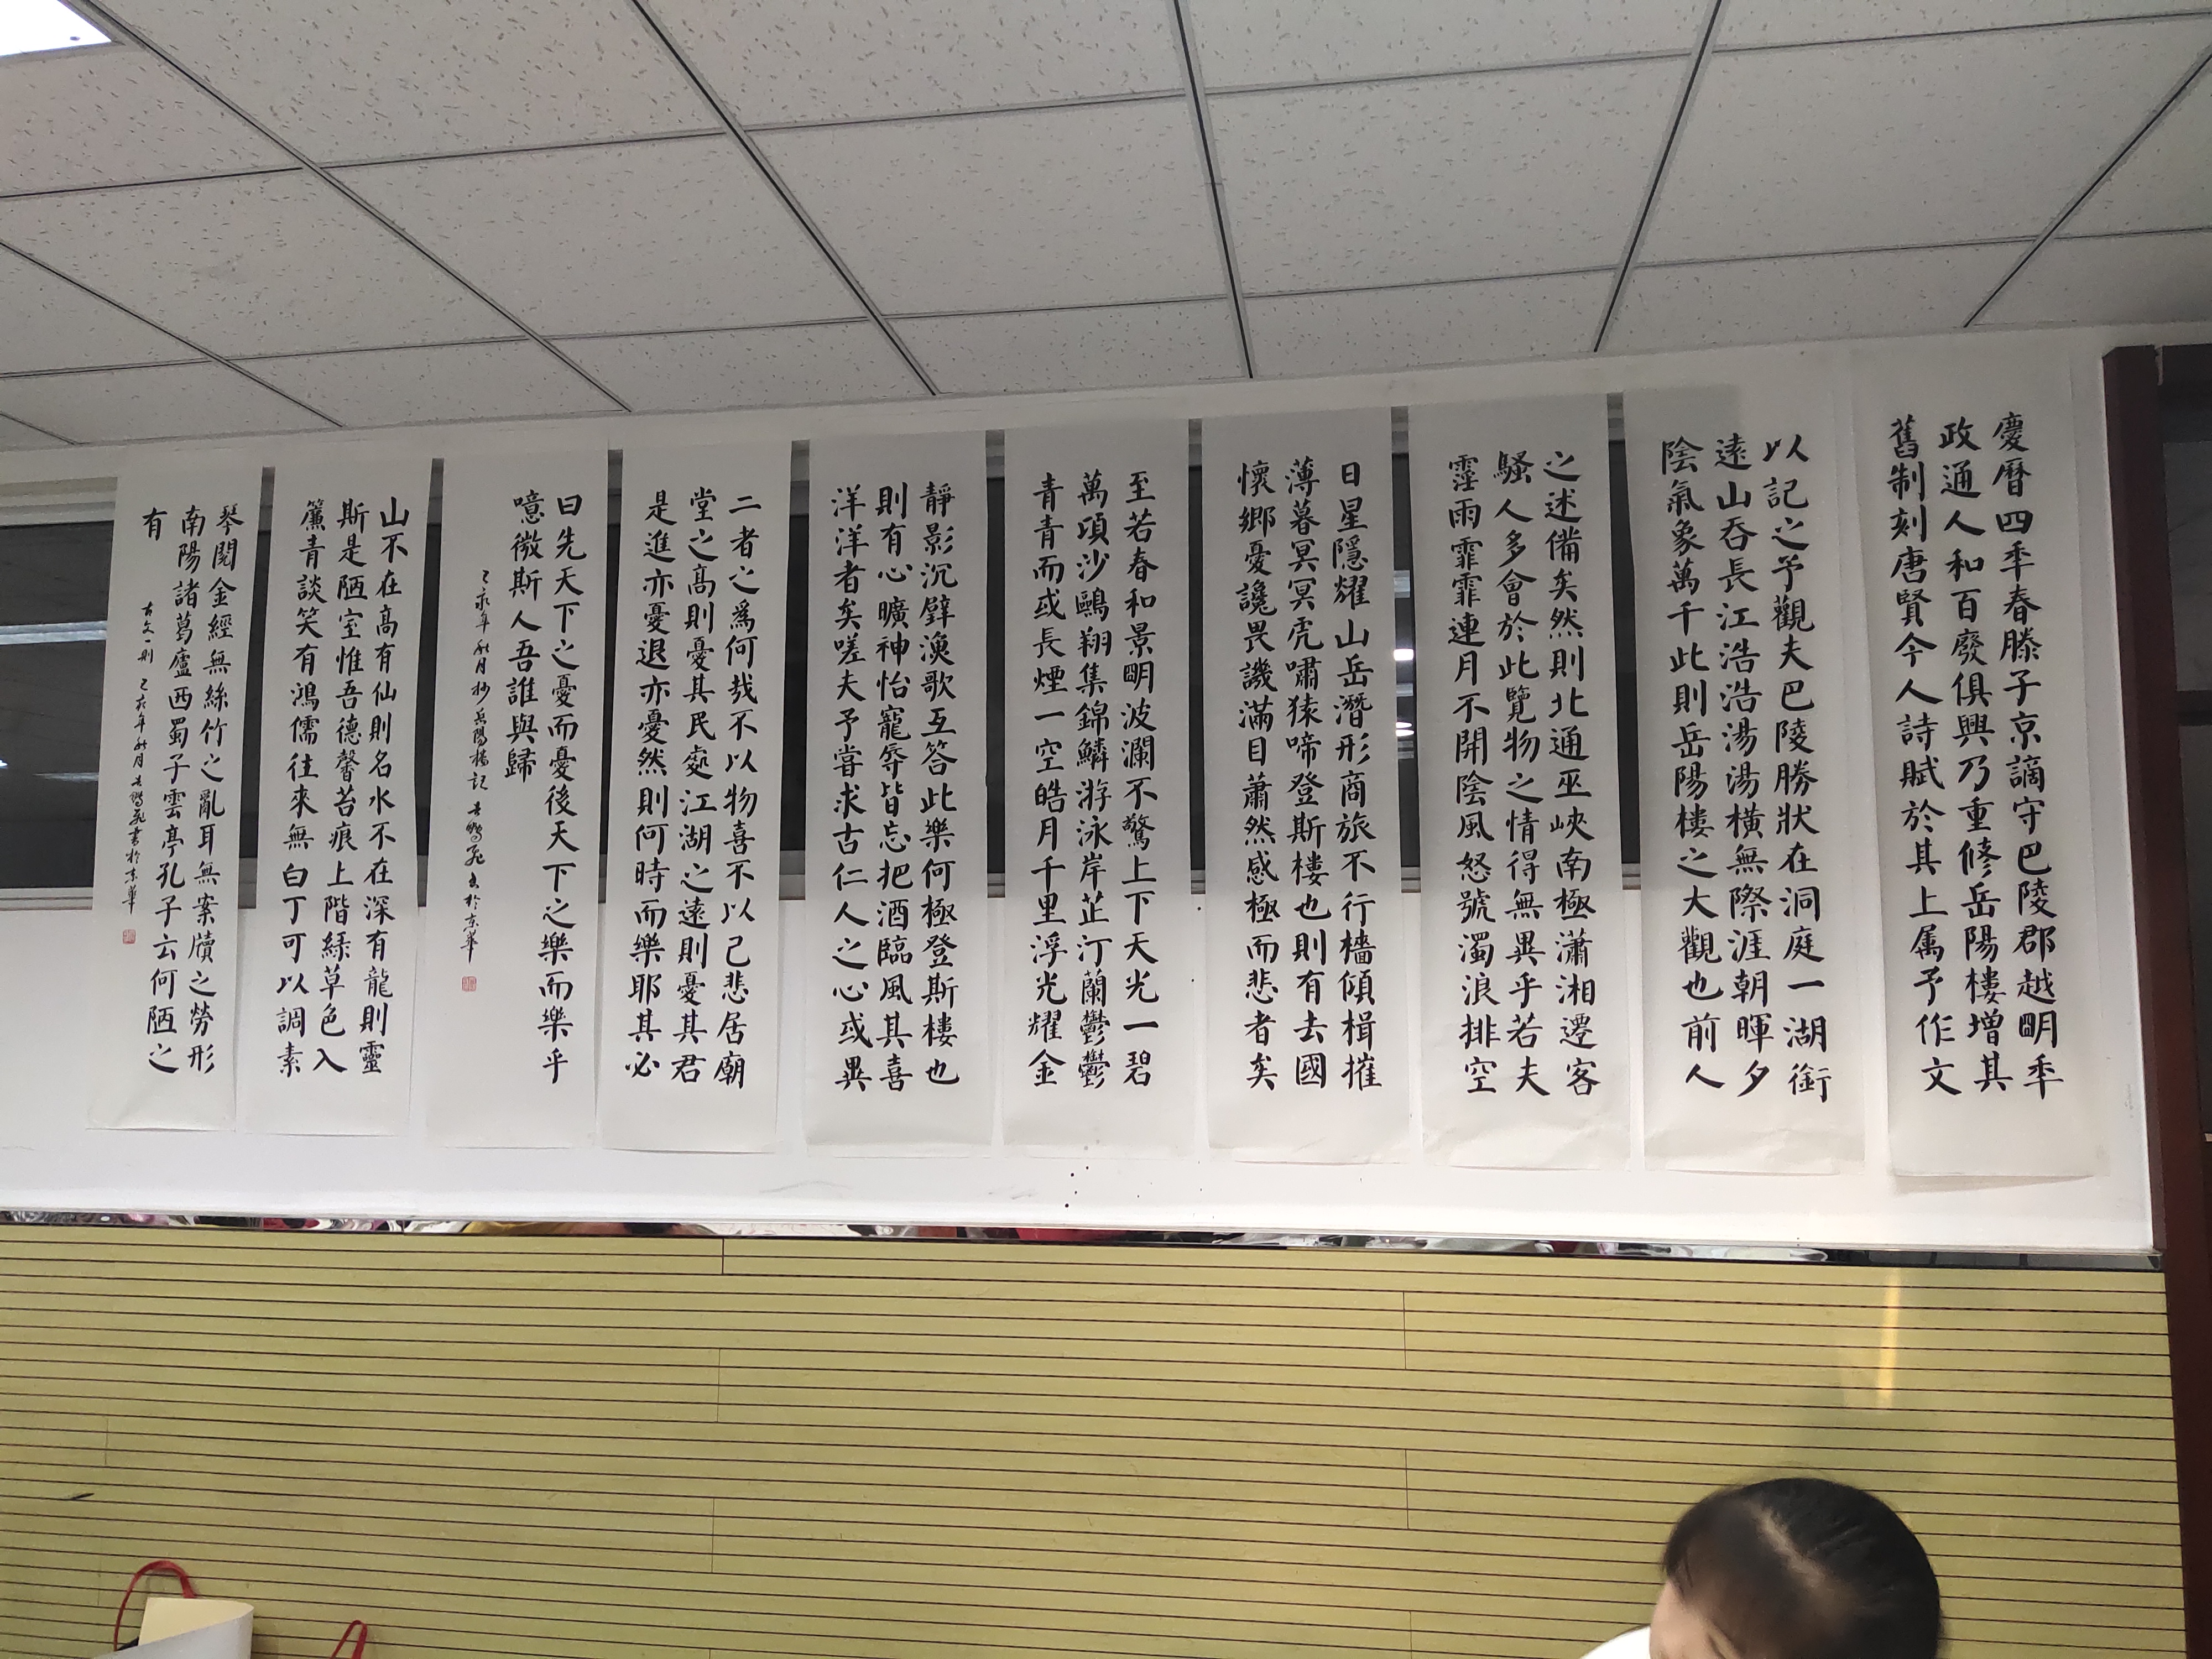 慶曆四年春滕子京謫守巴陵郡越明年
政通人和百廢俱興乃重修岳陽樓增其
舊制刻唐賢今人詩賦於其上属予作文
以記之予觀夫巴陵勝狀在洞庭一湖銜
遠山吞長江浩浩湯湯橫無際涯朝暉夕
陰氣象萬千此則岳陽樓之大觀也前人
之述備矣然則北通巫峽南極瀟湘遷客
騷人多會於此覽物之情得無異乎若夫
霪雨霏霏連月不開陰風怒號濁浪排空
日星隱耀山岳潛形商旅不行檣傾楫摧
薄暮冥冥虎嘯猿啼登斯樓也則有去國
懷鄉憂讒畏譏滿目蕭然感極而悲者矣
至若春和景明波瀾不驚上下天光一碧
萬項沙鷗翔集錦鱗游泳岸芷汀蘭鬱鬱
青青而或長煙一空皓月千里浮光耀金
靜影沉璧漁歌互答此樂何極登斯樓也
則有心曠神怡寵辱皆忘把酒臨風其喜
洋洋者矣嗟夫予嘗求古仁人之心或異
二者之為何哉不以物喜不以己悲居廟
堂之高則憂其民處江湖之遠則憂其君
是進亦憂退亦憂然則何時而樂耶其必
曰先天下之憂而憂後天下之樂而樂乎
噫微斯人吾誰與歸
年秋月抄岳陽樓記 書於京華
山不在高有仙則名水不在深有龍則靈
斯是陋室惟吾德馨苔痕上階綠草色入
簾青談笑有鴻儒往來無白丁可以調素
琴閱金經無絲竹之亂耳無案牘之勞形
南陽諸葛廬西蜀子雲亭孔子云何陋之
有
古文一則 年秋月 書於京華